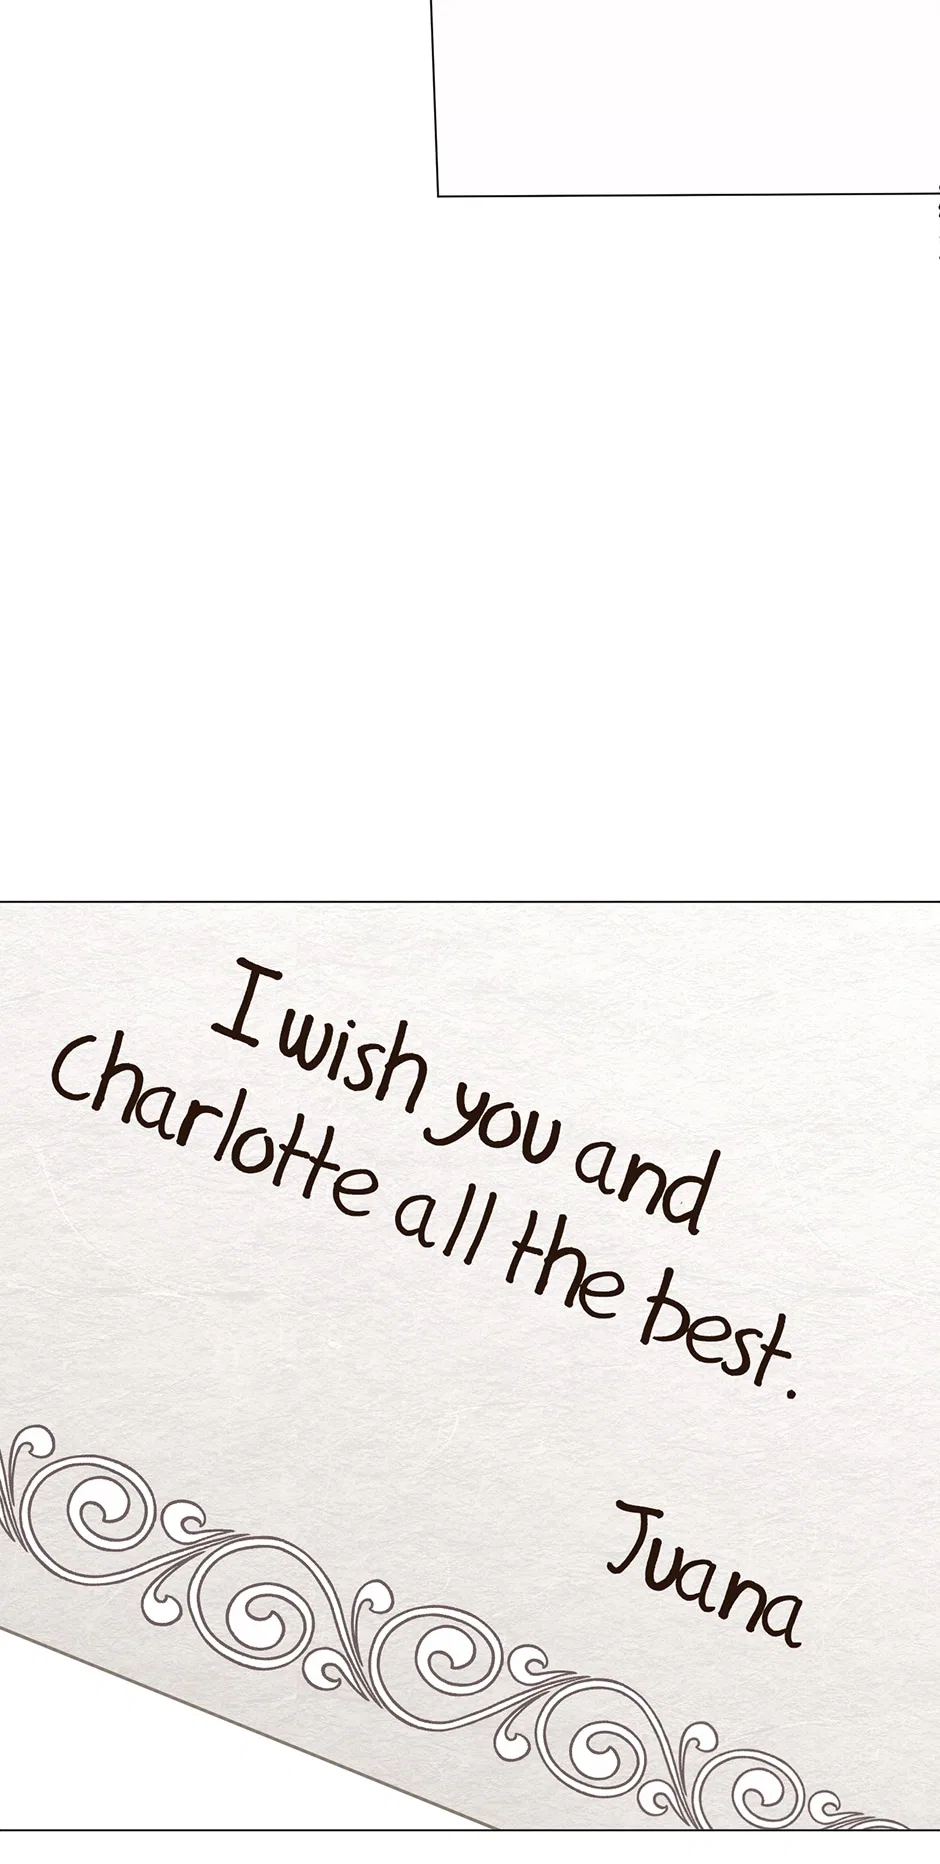 I wish you and
Charlotte all the best.
Juana